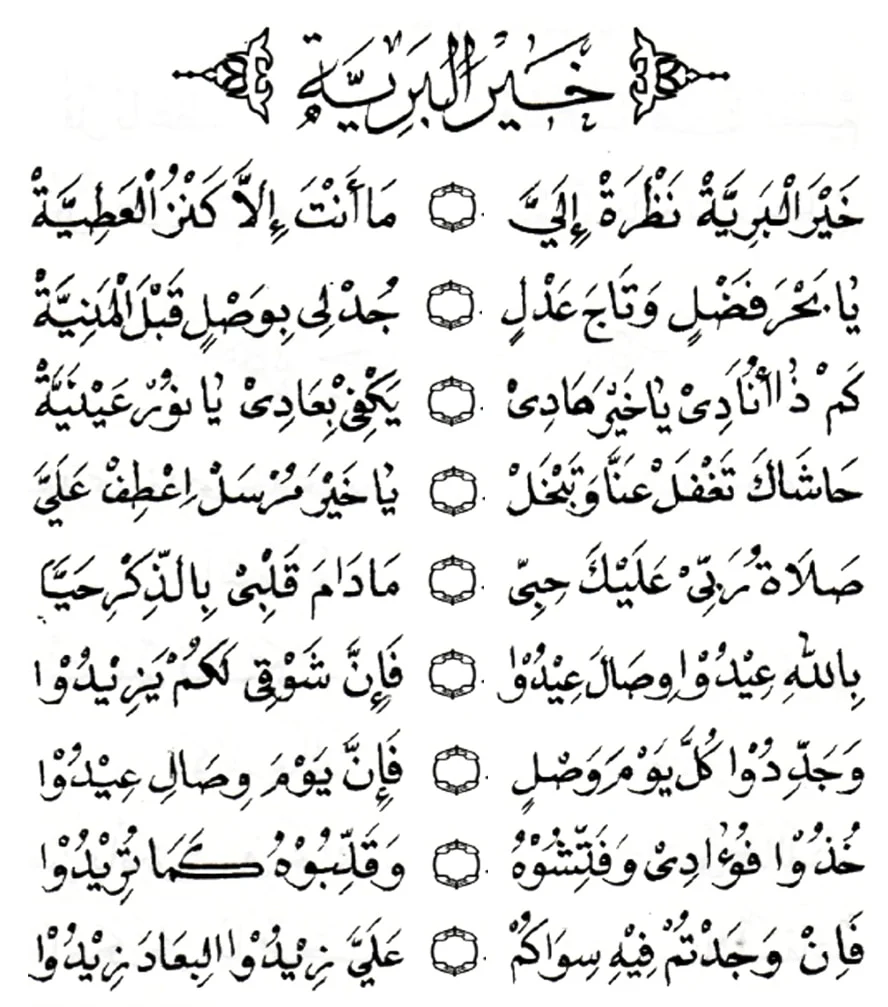 خَيْرُ الْبَرِيَّةِ
خَيْرَ الْبَرِيَّةْ نَظْرَةْ إِلَيَّ مَا أَنْتَ إِلاَّ كَنْزُ الْعَطِيَّةْ
يَا بَحْرَ فَضْلٍ وَتَاجَ عَدْلٍ جُدْ لِى بِوَصْلٍ قَبْلَ الْمَنِيَّةْ
كَمْ ذَا أُنَادِىْ يَا خَيْرَ هَادِىْ يَكْفِىْ بِعَادِىْ يَا نُوْرَ عَيْنَيَّةْ
حَاشَاكَ تَغْفَلْ عَنَّا وَتَبْخَلْ يَا خَيْرَ مُرْسَلْ اِعْطِفْ عَلَيَّ
صَلَاةُ رَبِّىْ عَلَيْكَ حِبِّىْ مَادَامَ قَلْبِىْ بِالذِّكْرِ حَيَّا
بِاللهِ عِيْدُوْا وِصَالَ عِيْدُوْا فَإِنَّ شَوْقِى لَكُمْ يَزِيْدُوْا
وَجَدِّدُوْا كُلَّ يَوْمَ وَصْلٍ فَإِنَّ يَوْمَ وِصَالِ عِيْدُوْا
خُذُوْا فُؤَادِىْ وَفَتِّشُوْهُ وَقَلِّبُوْهُ كَمَا تُرِيْدُوْا
فَاِنْ وَجَدْتُمْ فِيْهِ سِوَاكُمْ عَلَيَّ زِيْدُوْا الْبِعَادَ زِيْدُوْا